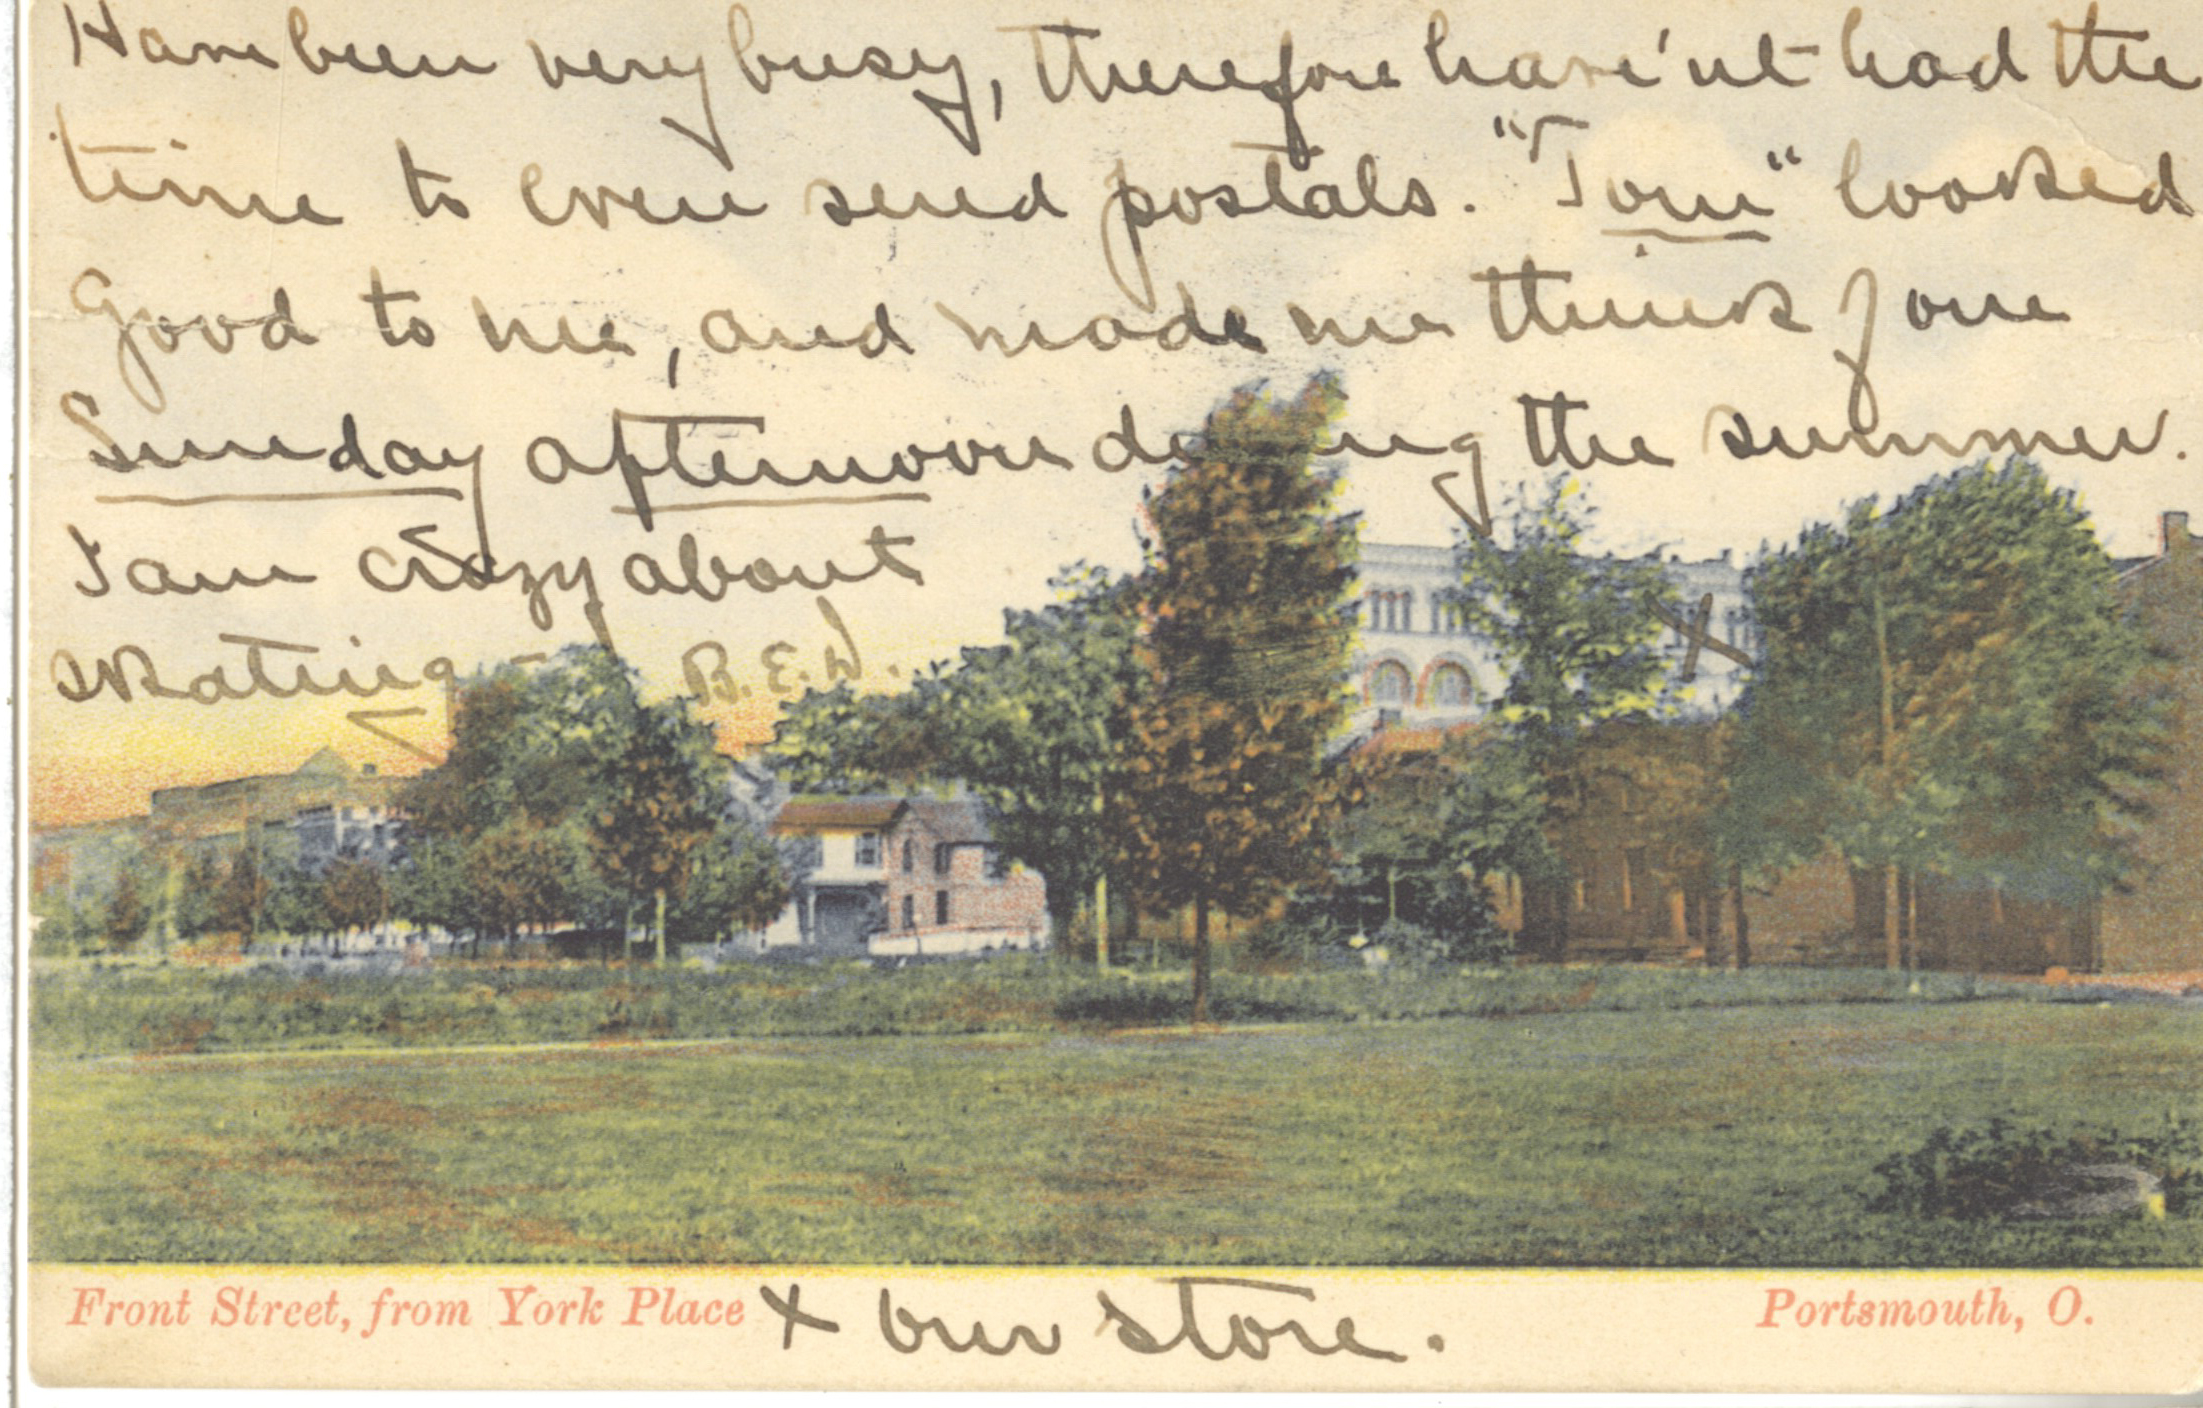 Have been very busy, therefore have'nt had the
time to even send postals. "Tom" looked
Good to me, and made me think of one
Sunday afternoon during the summer.
I am crazy about
skating - B.E.W.
X
Front Street, from York Place X our store. Portsmouth, O.